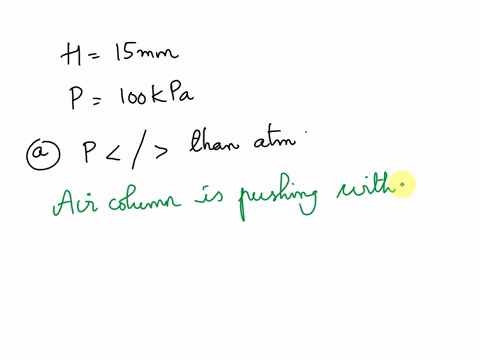 H = 15mm
P = 100kPa
a P < / > than atm.
Air column is pushing with